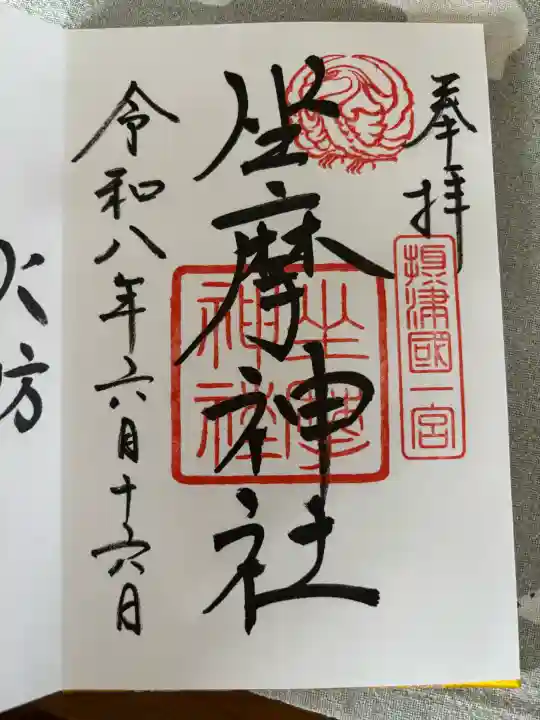 奉拝
攝津國一宮
坐摩神社
坐摩神社
令和八年六月十六日